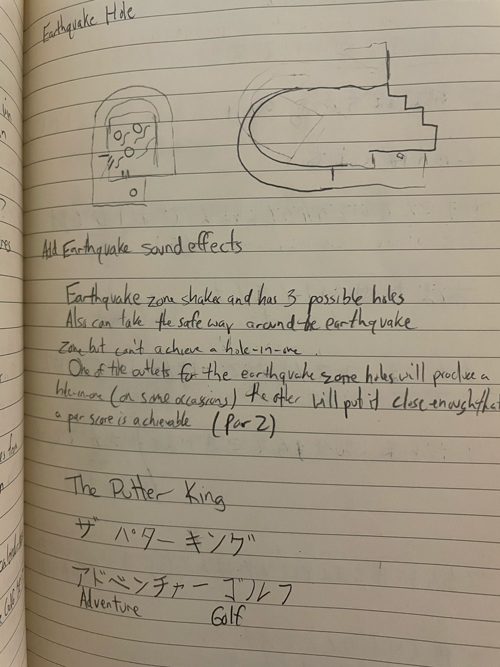 Earthquake Hole
Add Earthquake sound effects
Earthquake zone shakes and has 3 possible holes
Also can take the safe way around the earthquake
zone but can't achieve a hole-in-one.
One of the outlets for the earthquake zone holes will produce a
hole-in-one (on some occassions) the other will put it close enough that
a par score is achievable (Par 2)
The Putter King
ザ パター キング
アドベンチャー ゴルフ
Adventure Golf